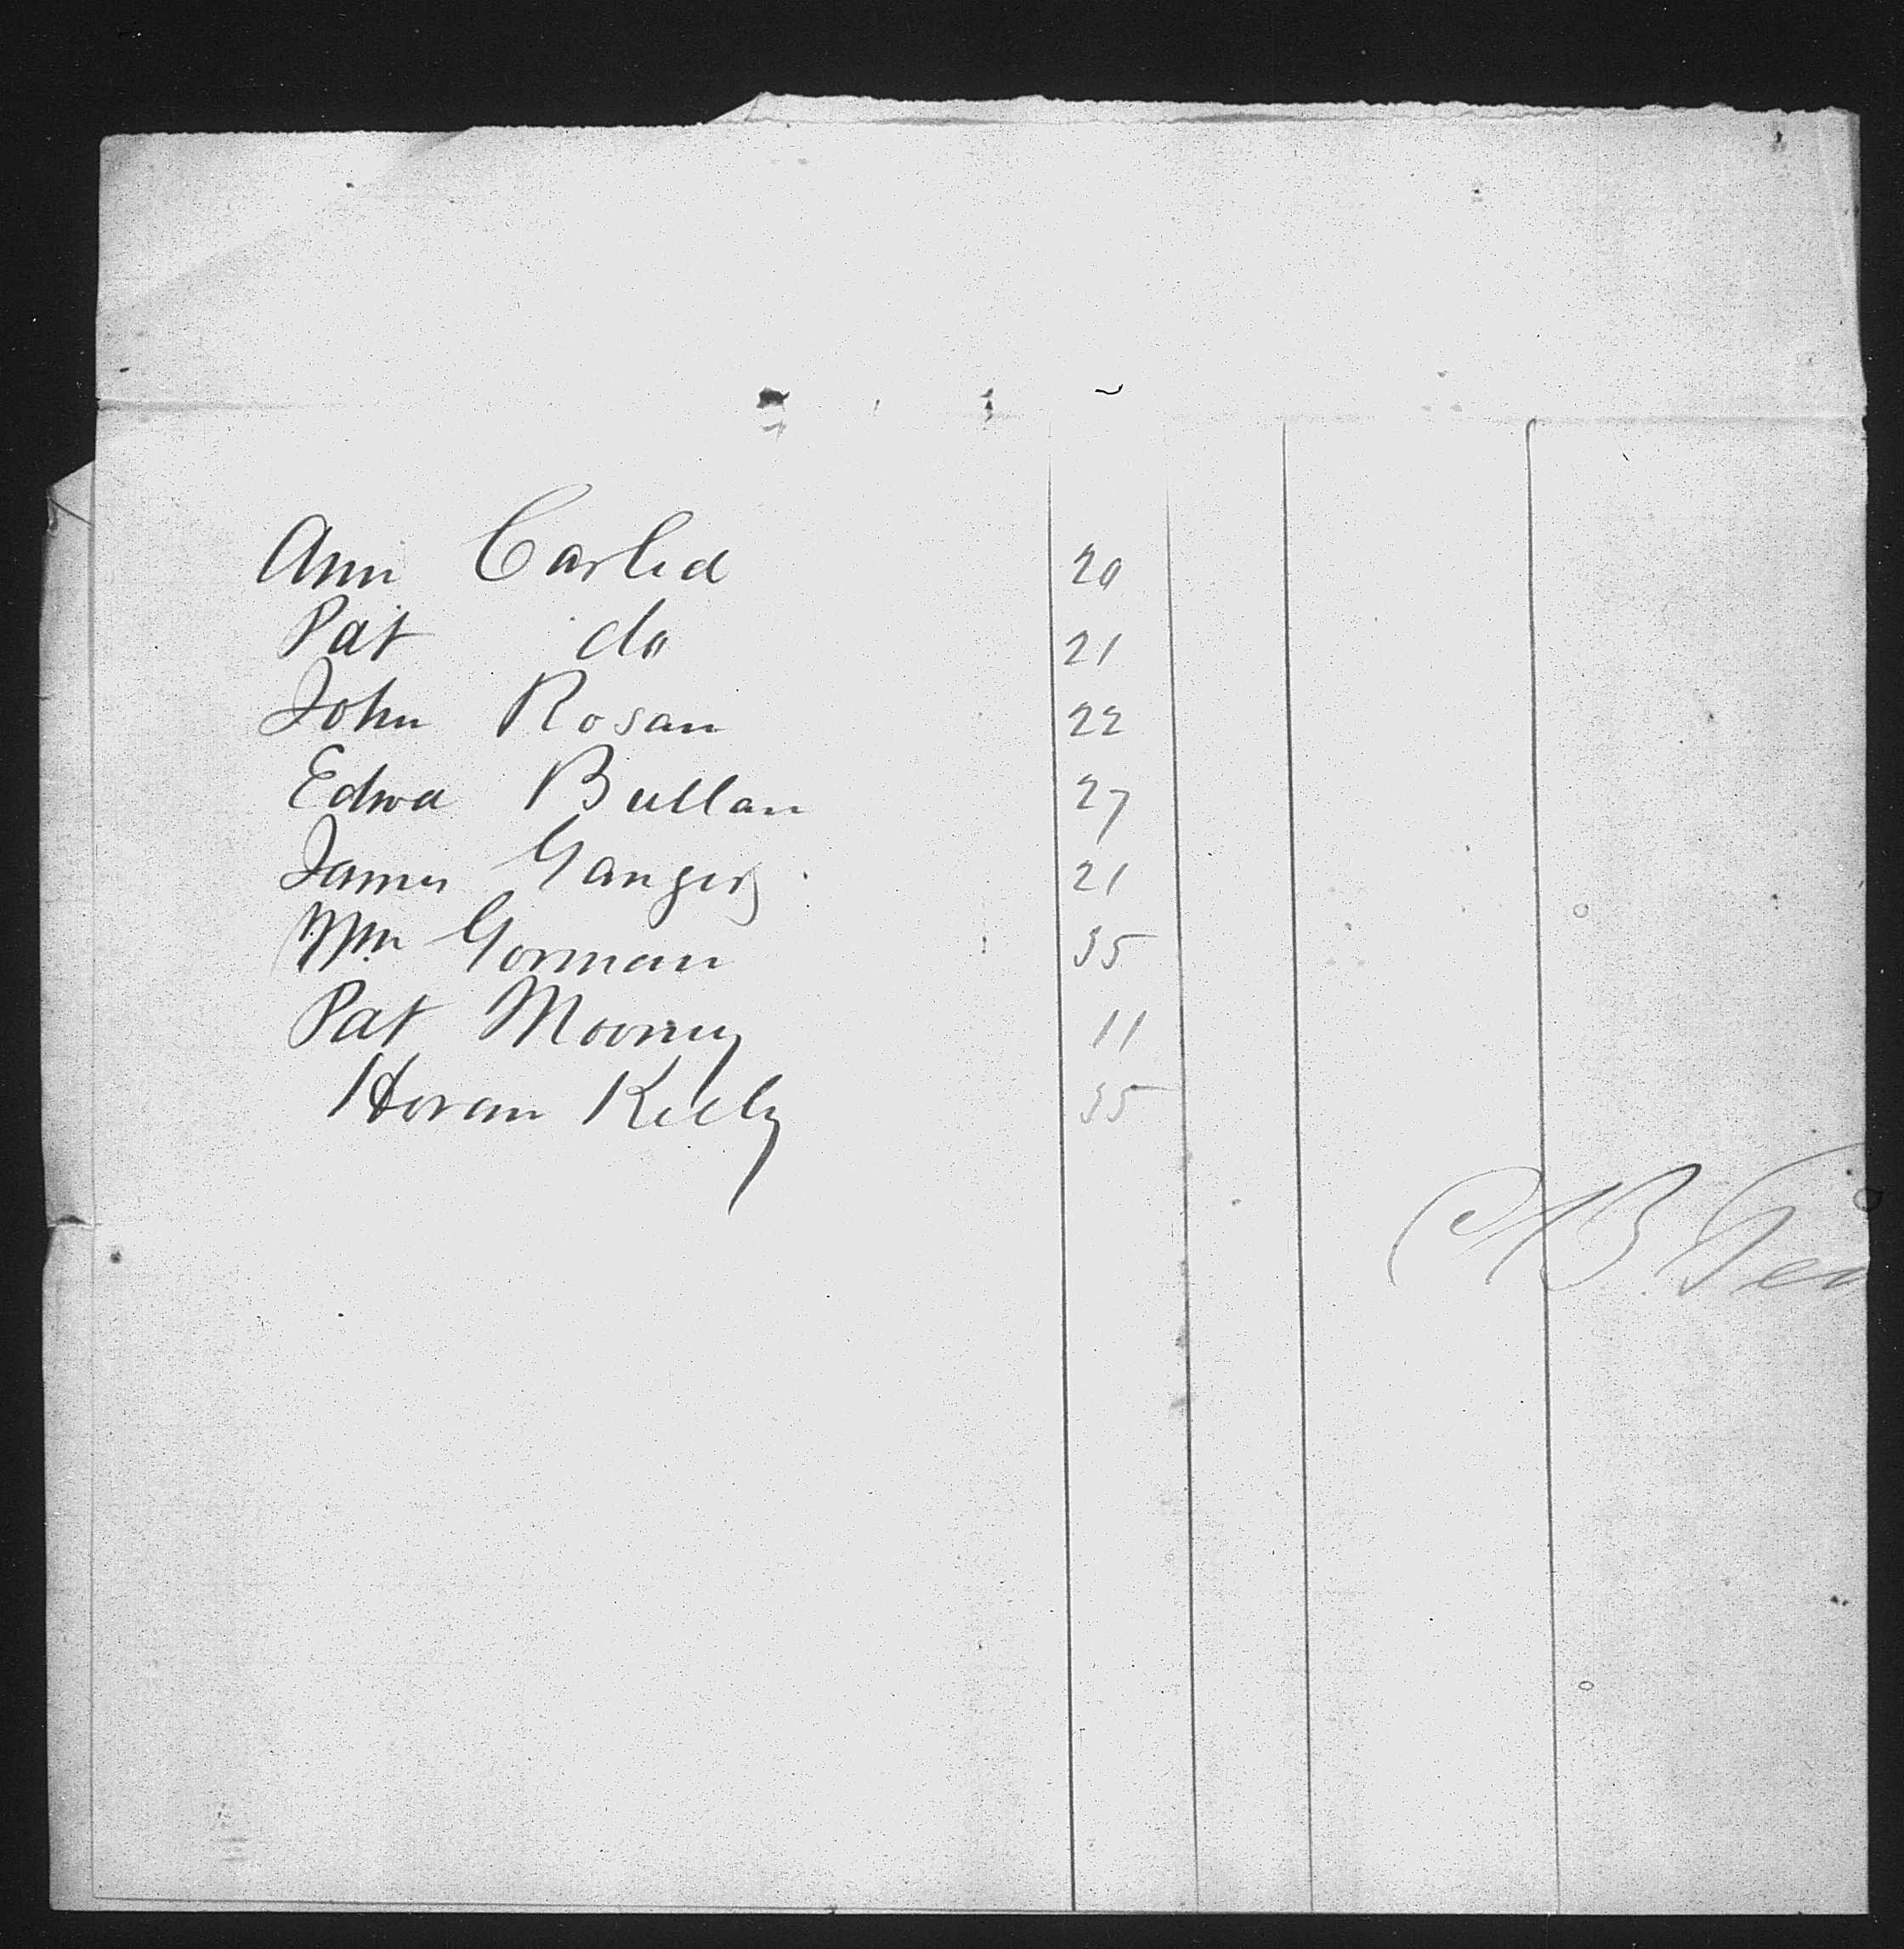 Ann Carled 20
Pat do 21
John Rosan 22
Edwd Bullan 27
James 21
Wm Gorman 35
Pat Mooney 11
Horan Kelly 35